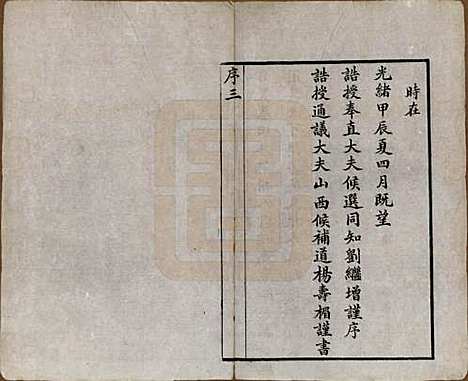 時在
光緒甲辰夏四月既望
誥授奉直大夫候選同知劉繼增謹序
誥授通議大夫山西候補道楊壽楣謹書
序三